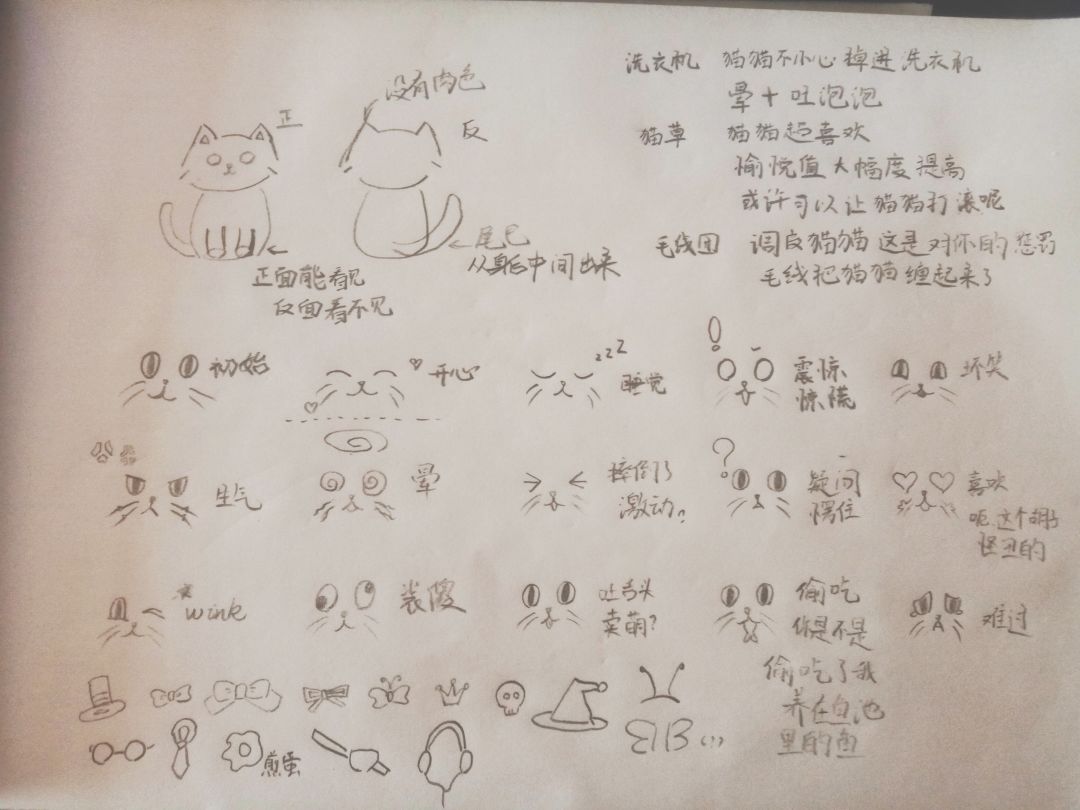 洗衣机 猫猫不小心掉进洗衣机
晕+吐泡泡
没有肉色
正
反
猫草 猫猫超喜欢
愉悦值大幅度提高
或许可以让猫猫打滚呢
尾巴
从身后中间出来
毛线团 调皮猫猫这是对你的惩罚
毛线把猫猫缠起来了
正面能看见
反面看不见
初始
开心
zzz
睡觉
!
震惊
惊慌
坏笑
生气
晕
摔倒了
激动?
?
疑问
愣住
喜欢
呃这个胡子
怪丑的
wink
装傻
吐舌头
卖萌?
偷吃
你是不是
偷吃了我
养在鱼池
里的鱼
难过
煎蛋